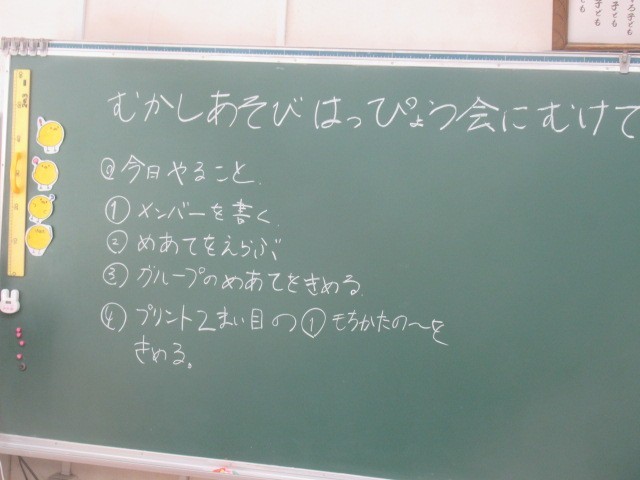 むかしあそび はっぴょう会にむけて
◎今日やること。
①メンバーを書く。
②めあてをえらぶ
③グループのめあてをきめる。
④プリント2まい目の①もちかたの〜を
きめる。
子ども
子ども